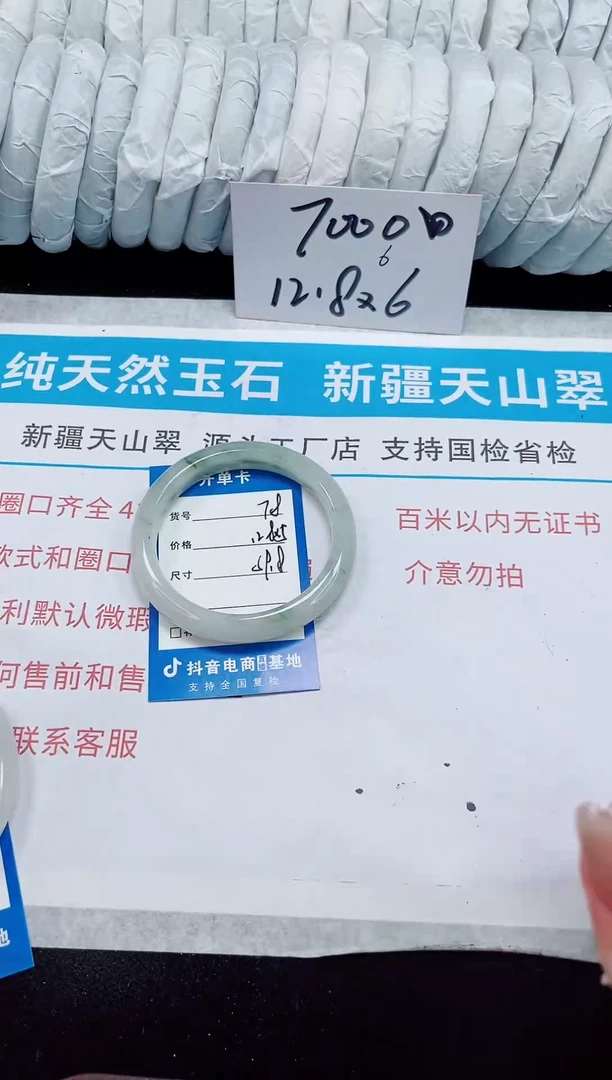 7000
6
12.8x6
纯天然玉石 新疆天山翠
新疆天山翠 源头工厂店 支持国检省检
圈口齐全4
款式和圈口
利默认微瑕
何售前和售
联系客服
百米以内无证书
介意勿拍
开单卡
货号 78
价格
尺寸 59.8
抖音电商 基地
支持全国复检
地